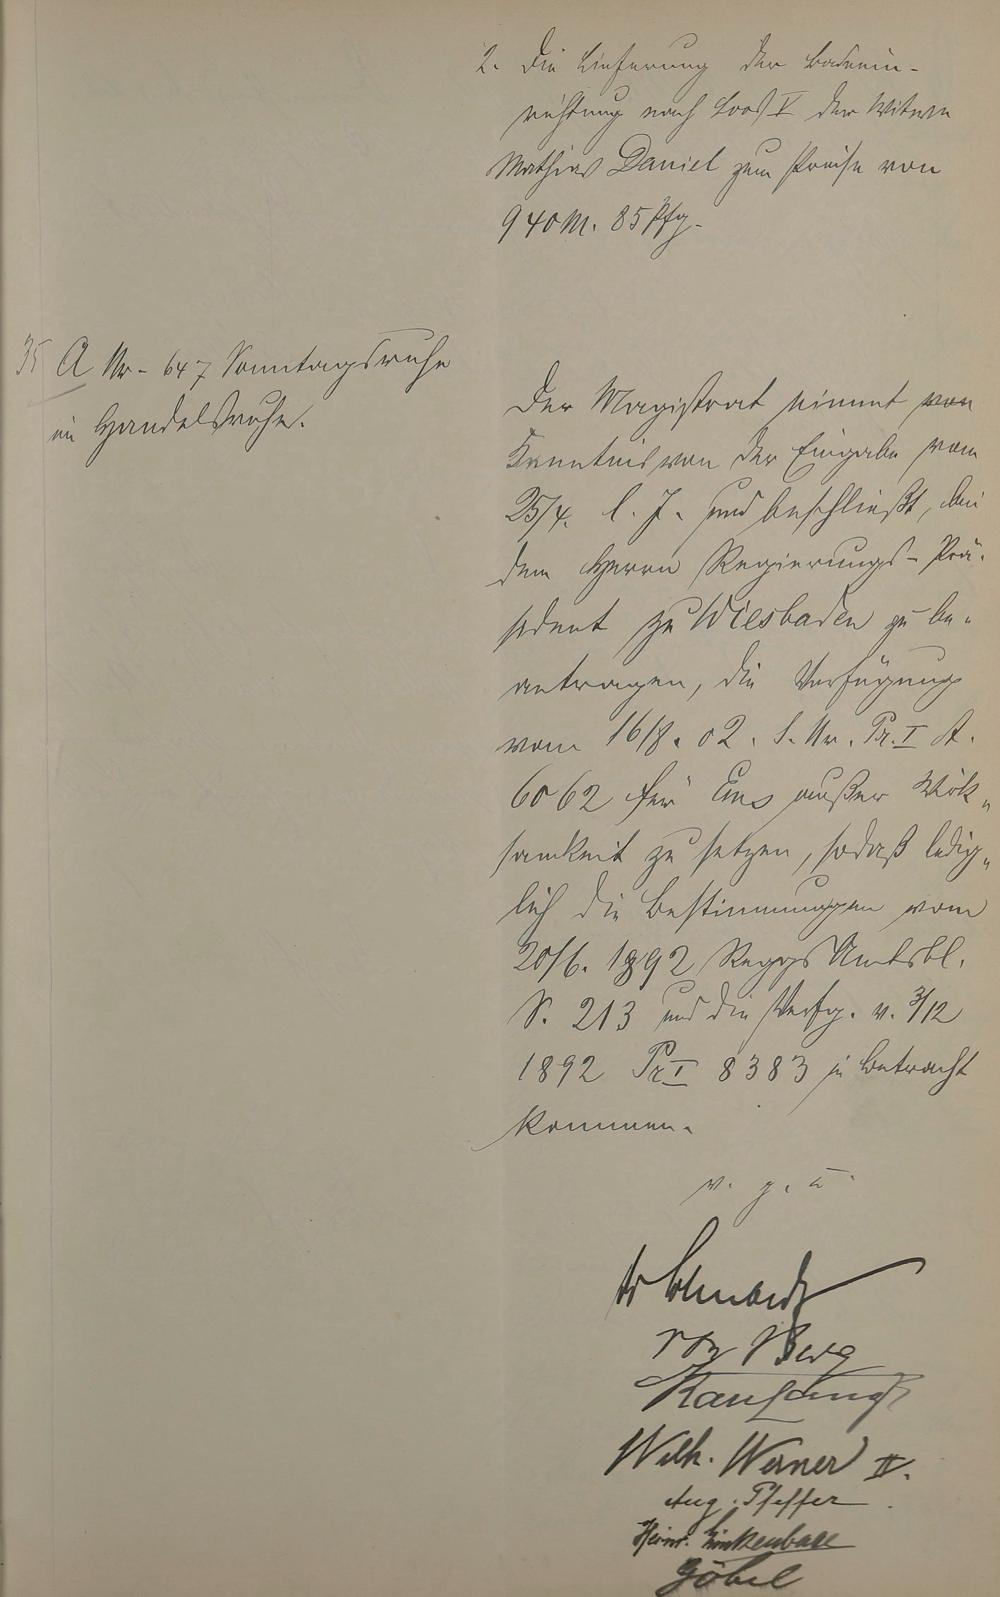 2. Die Lieferung der Badeein-
richtung nach Loos V der Witwe
Mathias Daniel zum Preise von
940 M. 85 Pfg.
35 A Nr. 647 Sonntagsruhe
im Handelsruhe.
Der Magistrat nimmt von
Kenntnis von der Eingabe vom
25/4. l. J. und beschließt, bei
dem Herrn Regierungs-Prä-
sident zu Wiesbaden zu be-
antragen, die Verfügung
vom 16/8. 02. S. Nr. Pr. I A.
6062 für Ems außer Wirk-
samkeit zu setzen, sodaß ledig-
lich die Bestimmungen vom
20/6. 1892 Reggs Amtsbl.
S. 213 und die Verfg. v. 3/12
1892 Pr I 8383 in Betracht
kommen.
v. g. u.
Dr
von Berg
Wilh. Werner II.
Aug. Pfeffer
Heinr. Linkenbach
Göbel